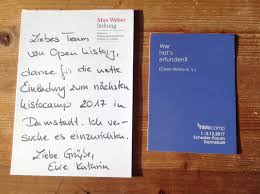 Max Weber
Stiftung
Liebes Team
von Open History,
danke für die nette
Einladung zum nächsten
histocamp 2017 in
Darmstadt. Ich ver-
suche es einzurichten.
Liebe Grüße,
Eure Kathrin
Wer
hat's
erfunden!?
(Open History e. V.)
histocamp
1.-2.12.2017
Schader-Forum
Darmstadt